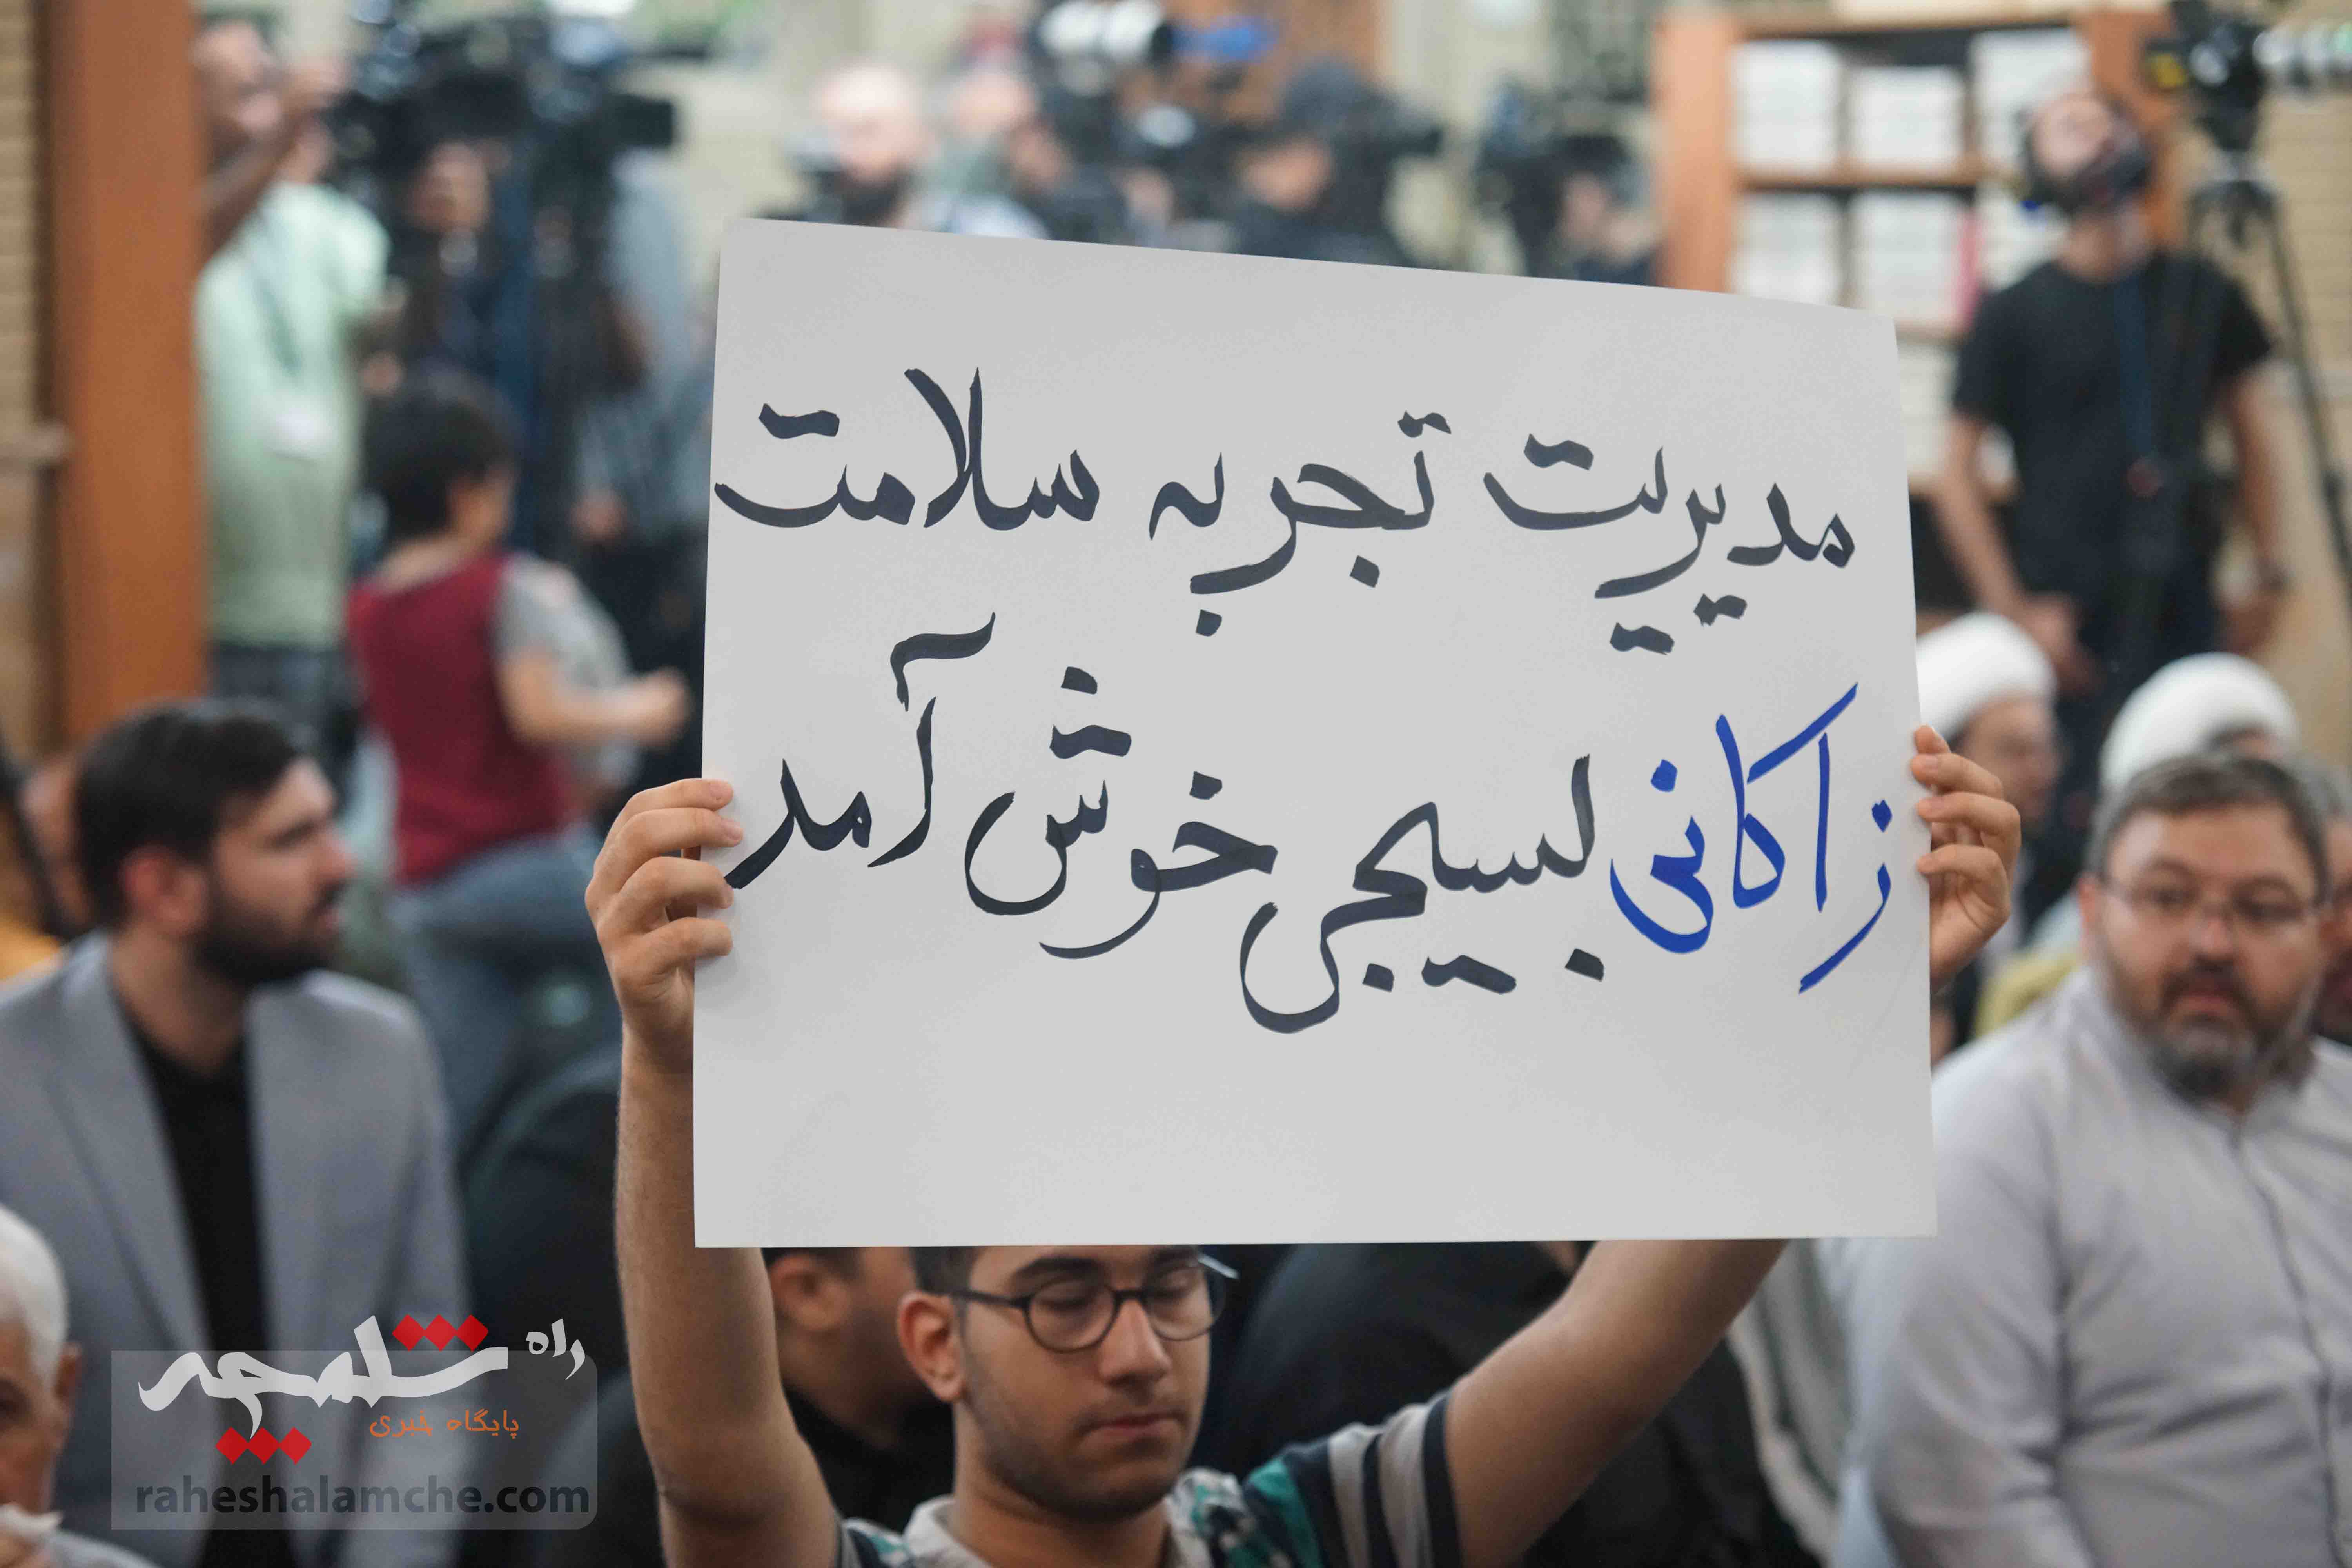 مدیریت تجربه سلامت
زاکانی بسیجی خوش آمد
راه شلمچه
پایگاه خبری
raheshalamche.com